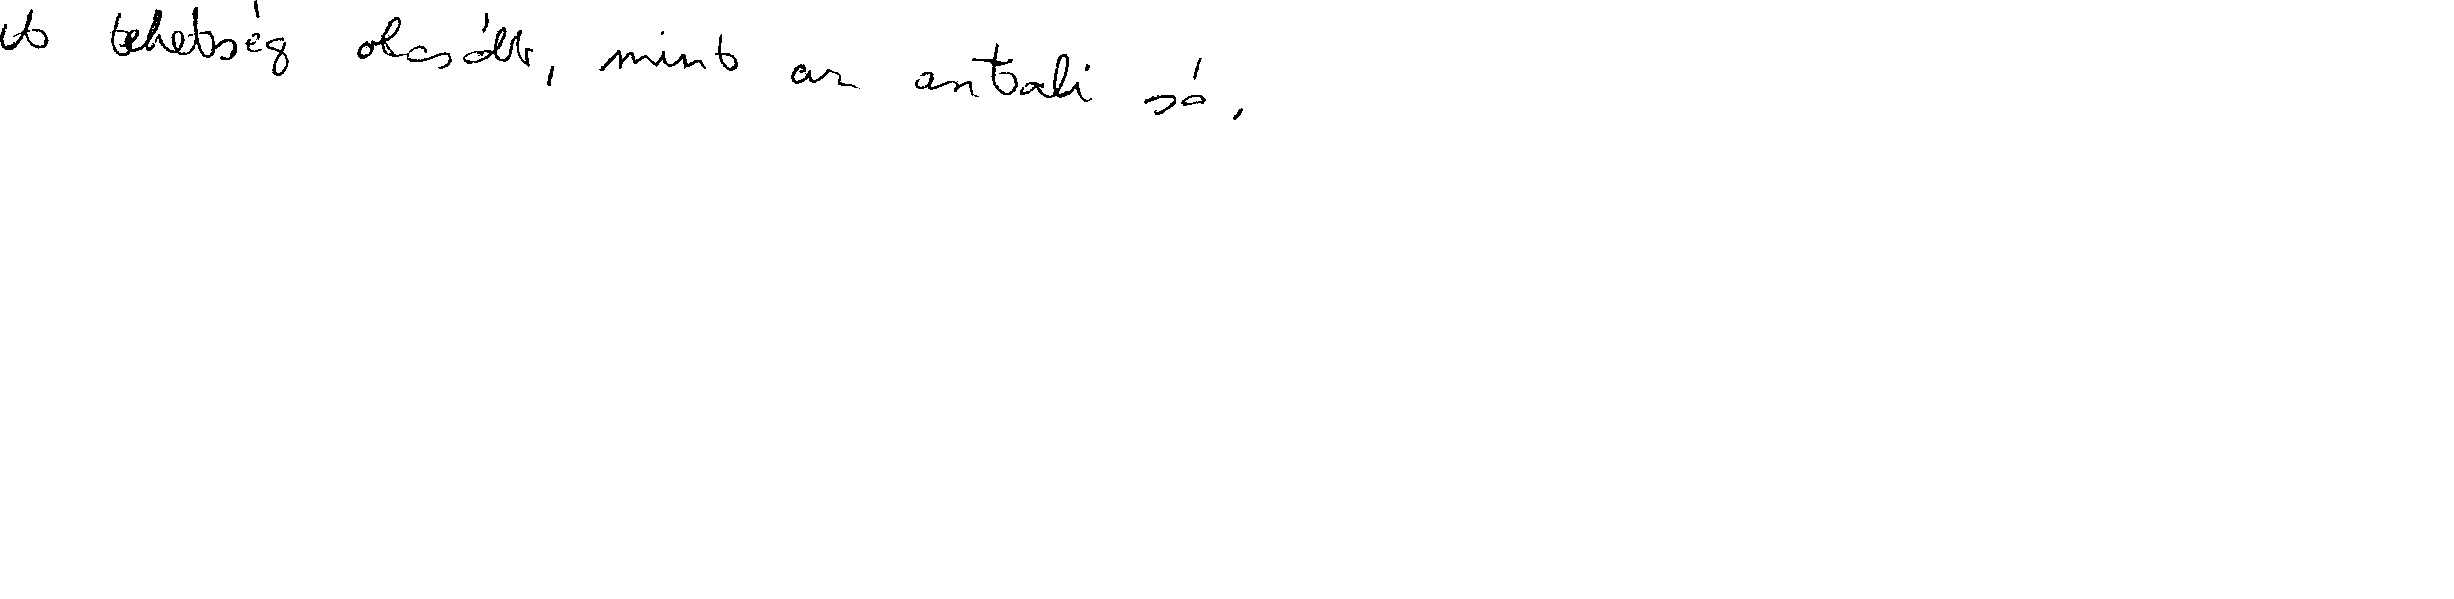 A tehetség olcsóbb, mint az antali só.